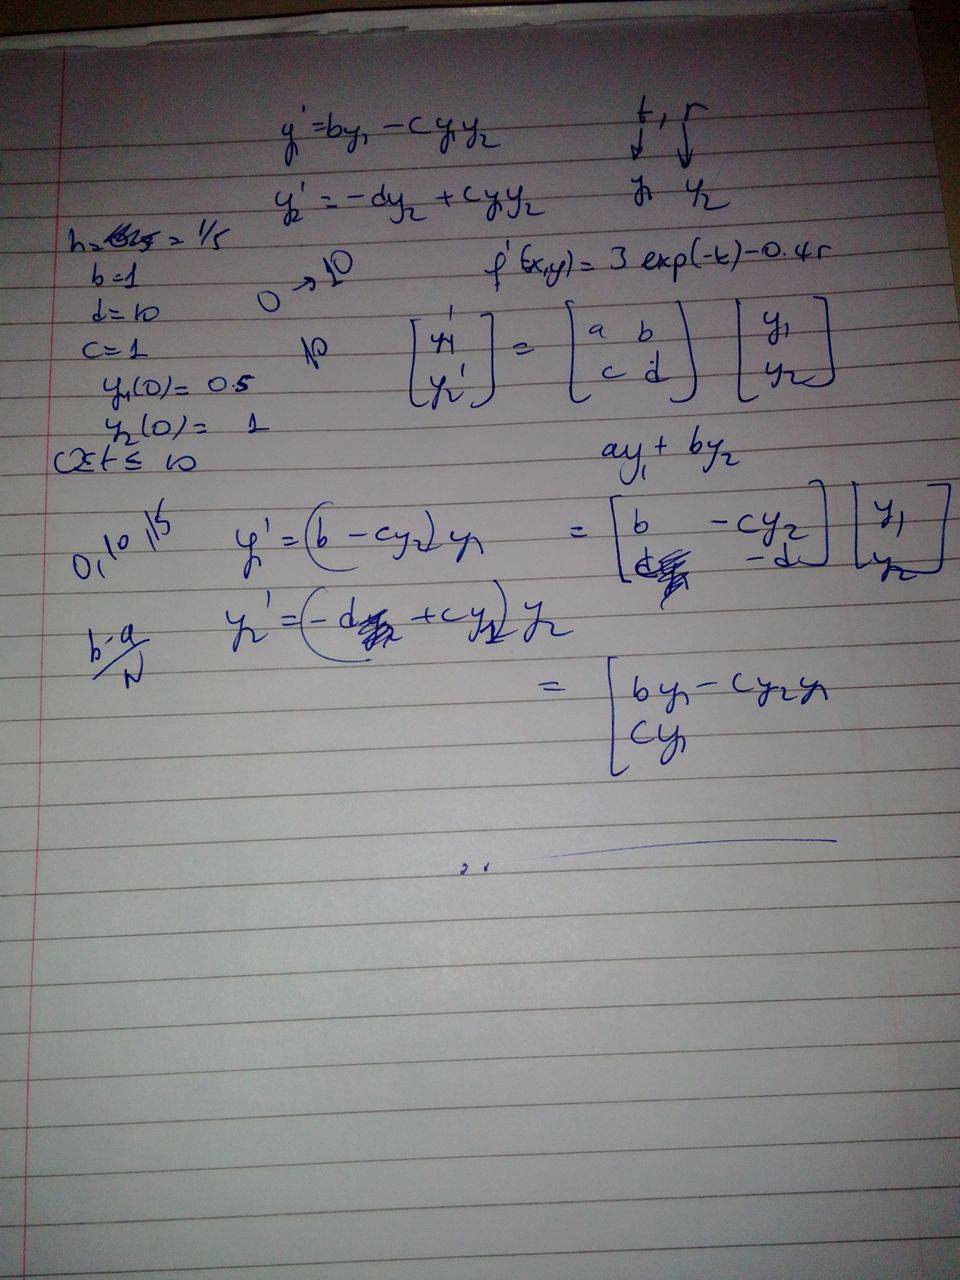 y' = by₁ - cy₁y₂
t, r
↓ ↓
y₁ y₂
y₂' = -dy₂ + cy₁y₂
h = = 1/5
b=1
d=10
c=1
y₁(0) = 0.5
y₂(0) = 1
0≤t≤ 10
0 → 10
f'(x,y) = 3 exp(-t) - 0.4r
[y₁' y₂'] = [a b c d] [y₁ y₂]
ay₁ + by₂
0, 10, 15
y' = (b - cy₂) y₁
= [b -cy₂ d -d] [y₁ y₂]
b-a/N
y₂' = (-d + cy₁) y₂
= [by₁ - cy₂y₁
cy₁